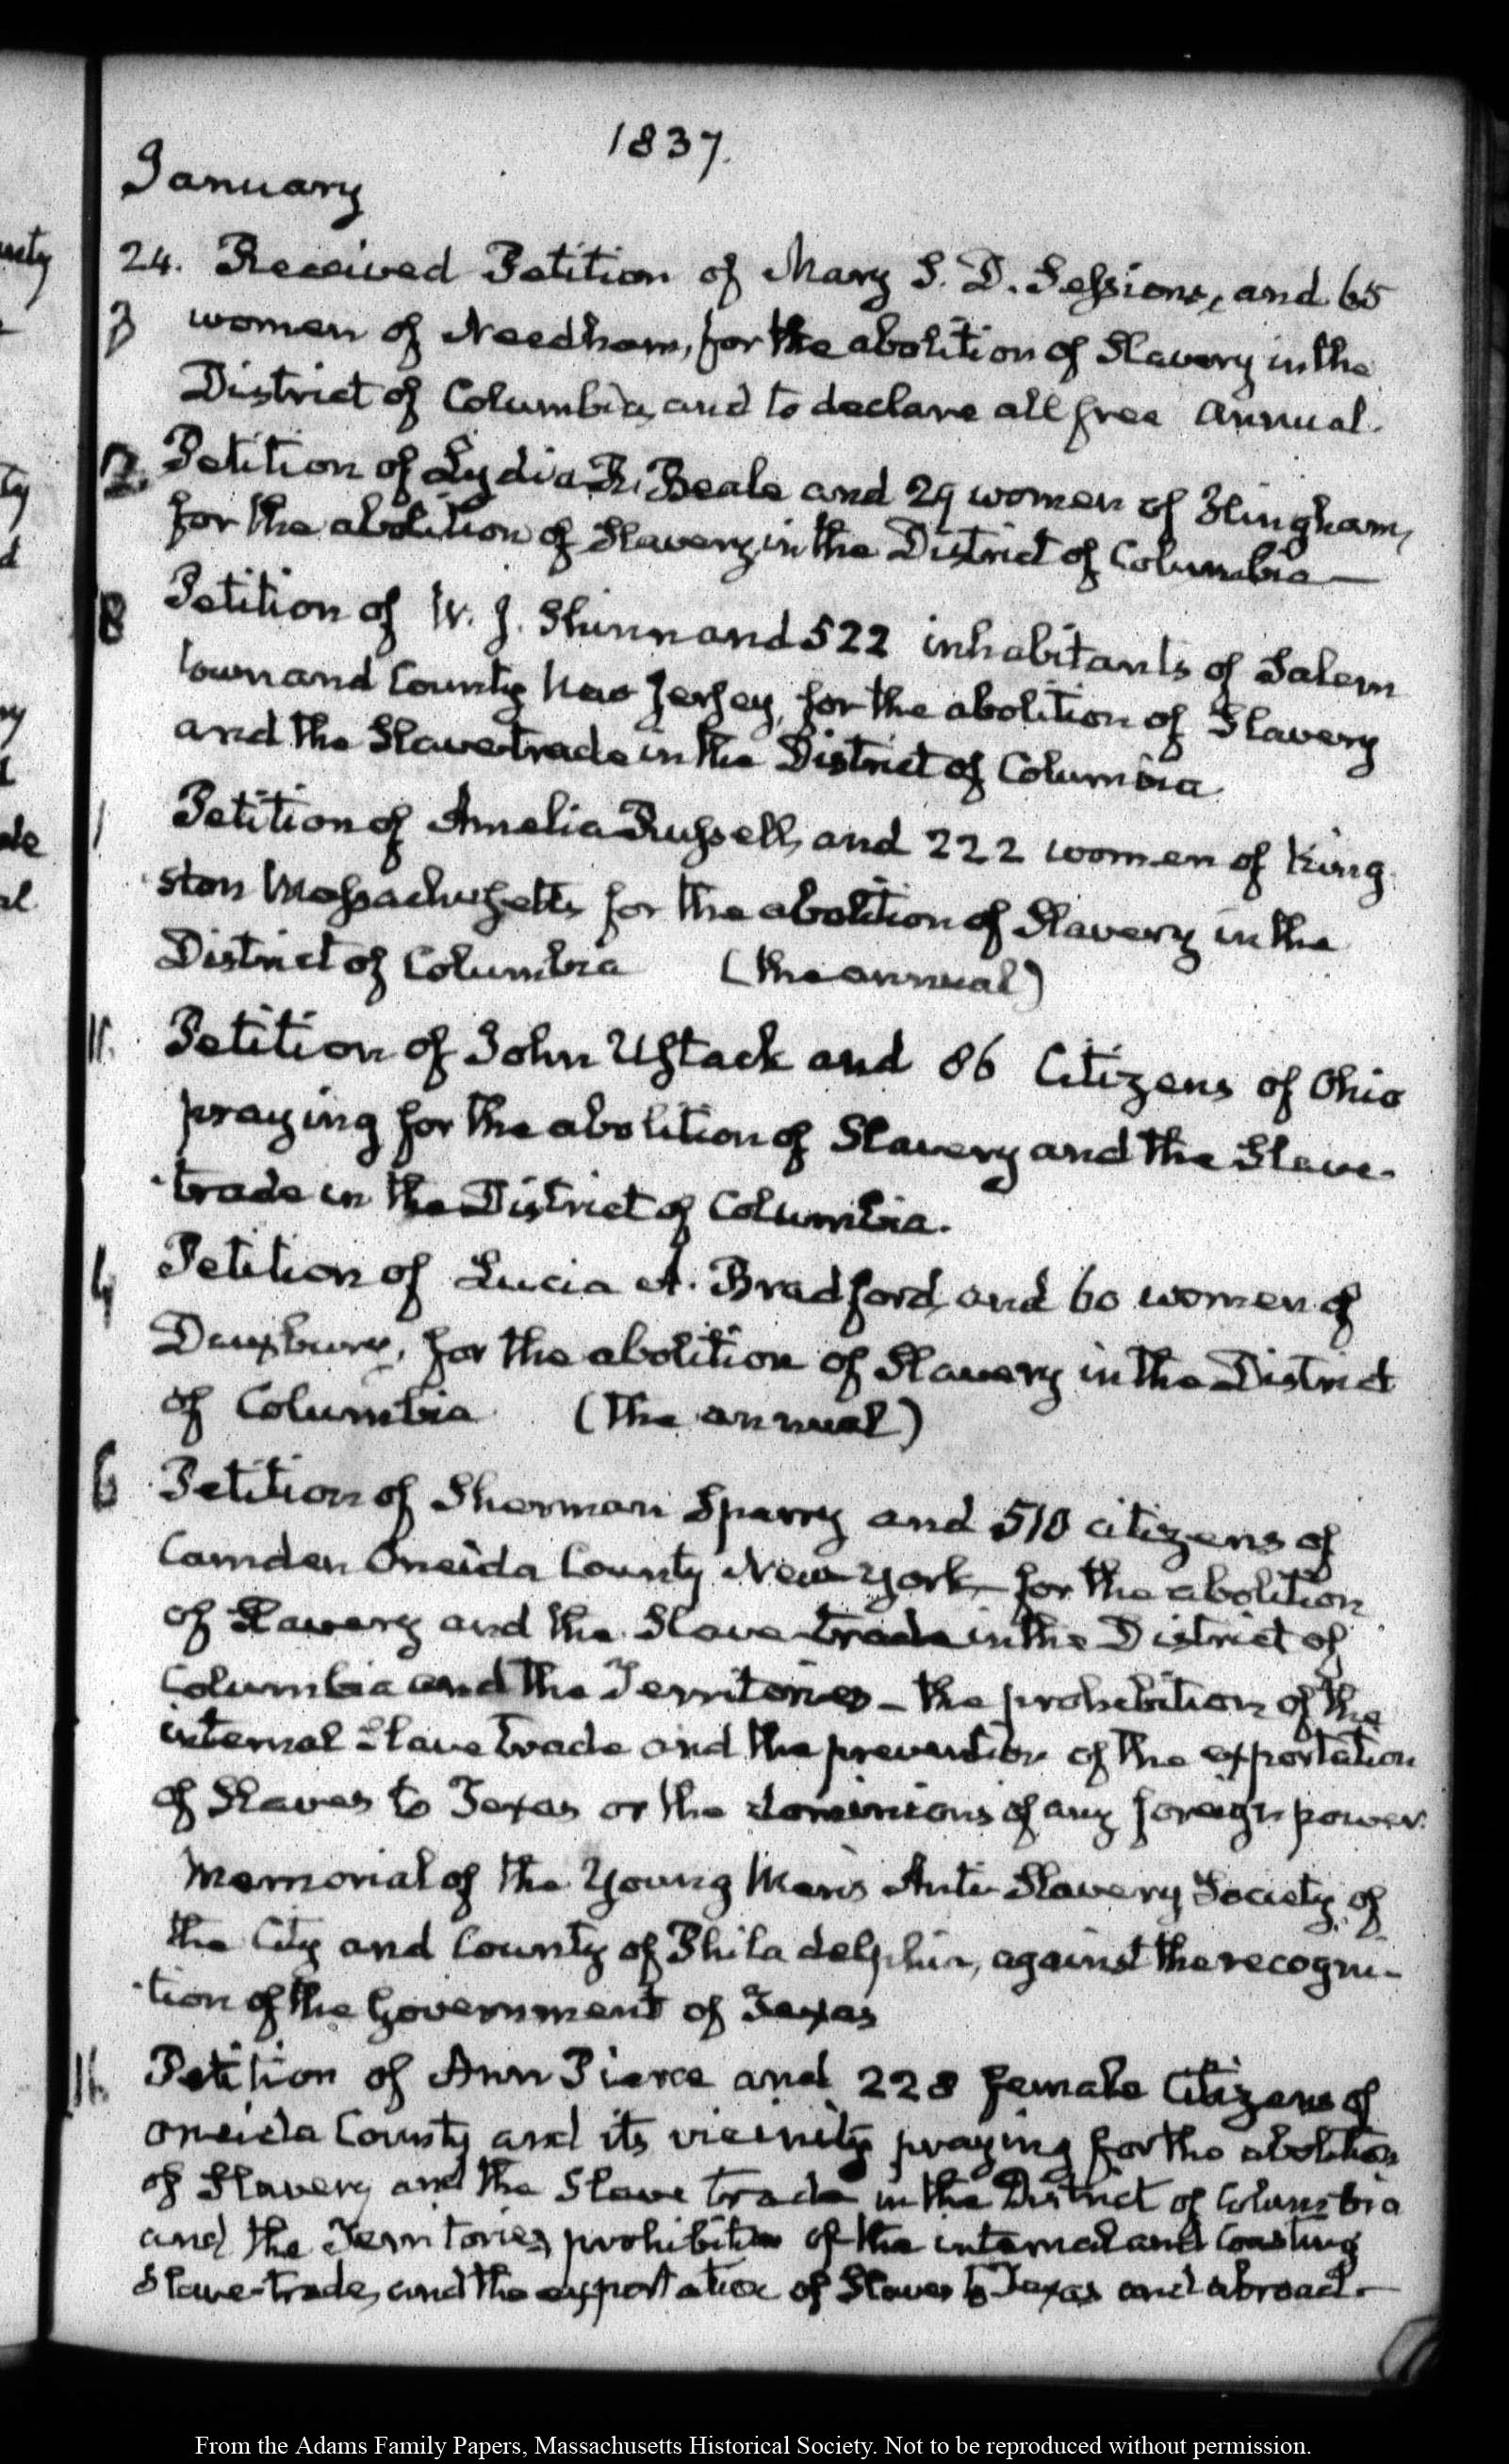 1837.
January
24. Received Petition of Mary S. D. Sessions, and 65
3 women of Needham, for the abolition of Slavery in the
District of Columbia, and to declare all free annual.
2. Petition of Lydia B. Beale and 29 women of Hingham,
for the abolition of Slavery in the District of Columbia—
8 Petition of W. J. Shinn and 522 inhabitants of Salem
town and County New Jersey, for the abolition of Slavery
and the Slave-trade in the District of Columbia
1 Petition of Amelia Russell, and 222 women of King
ston Massachusetts for the abolition of Slavery in the
District of Columbia (the annual)
11. Petition of John and 86 Citizens of Ohio
praying for the abolition of Slavery and the Slave-
-trade in the District of Columbia.
4 Petition of Lucia A. Bradford, and 60 women of
Duxbury, for the abolition of Slavery in the District
of Columbia (the annual)
6 Petition of Sherman Sparry and 510 citizens of
Camden Oneida County New-York, for the abolition
of Slavery and the Slave-trade in the District of
Columbia and the Territories – the prohibition of the
internal Slave trade and the prevention of the exportation
of Slaves to Texas or the dominions of any foreign power.
Memorial of the Young Men's Anti-Slavery Society of
the City and County of Philadelphia, against the recogni-
-tion of the Government of Texas
11. Petition of Ann Pierce and 228 female Citizens of
Oneida County and its vicinity praying for the abolition
of Slavery and the Slave trade in the District of Columbia
and the Territories, prohibition of the internal and Coasting
Slave-trade, and the exportation of Slaves to Texas and abroad.—
From the Adams Family Papers, Massachusetts Historical Society. Not to be reproduced without permission.